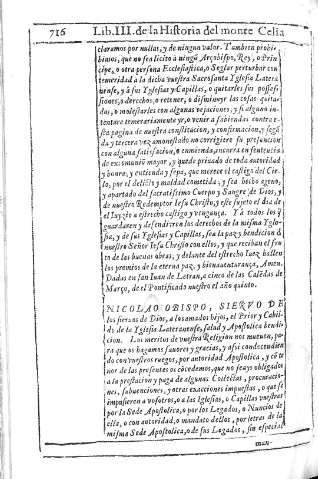 716 Lib. III. de la Historia del monte Celia
claramos por nullas, y de ningun valor. Tambien prohibimos,
que no sea licito à ningũ Arçobispo, Rey, o Principe,
o otra persona Ecclesiastica, o Seglar perturbar con
temeridad a la dicha nuestra Sacrosanta Yglesia Lateranense,
y à sus Yglesias y Capillas, o quitarles sus possessiones,
o derechos, o retener, o disminuyr las cosas quitadas,
o molestarles con algunas vejaciones, y si alguno
intentare temerariamente yr, o venir a sabiendas contra esta
pagina de nuestra constitucion, y confirmacion, y segũda
y tercera vez amonestado no corrigiere su presuncion
con alguna satisfacion, o enmienda, incurra en sentencia
de excomunion mayor, y quede privado de toda autoridad
y honra, y entienda y sepa, que merece el castigo del Cielo,
por el delicto y maldad cometida; y sea hecho ageno,
y apartado del sacratissimo Cuerpo y Sangre de Dios, y
de nuestro Redemptor Iesu Christo, y este sujeto el dia del
Iuyzio a estrecho castigo y vengança. Y a todos los q̃
guardaren y defendieren los derechos de la misma Yglesia,
y de sus Yglesias y Capillas, sea la paz y bendicion de
nuestro Señor Iesu Christo con ellos, y que reciban el fruto
de las buenas obras, y delante del estrecho Iuez hallen
los premios de la eterna paz, y bienaventurança, Amen.
Dadas en san Iuan de Letran, a cinco de las Calẽdas de
Março, de el Pontificado nuestro el año quinto.
NICOLAO OBISPO, SIERVO DE
los siervos de Dios, a los amados hijos, el Prior y Cabildo
de la Yglesia Lateranense, salud y Apostolica bendicion.
Los meritos de vuestra Religion nos mueven, para
que os hagamos favores y gracias, y assi condecendiendo
con vuestros ruegos, por autoridad Apostolica, y cõ tenor
de las presentes os cõcedemos, que no seays obligados
a la prestacion y paga de algunas Colectas, procuraciones,
subvenciones, y otras exacciones impuestas, o que se
impusieren a vosotros, o a las Iglesias, o Capillas vuestras
por la Sede Apostolica, o por los Legados, o Nuncios de
ella, o con autoridad, o mandato dellos, por letras de la
misma Sede Apostolica, o de sus Legados, sin especial
man-